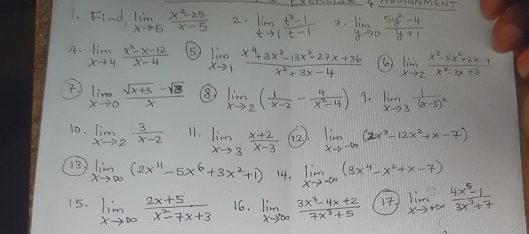 EXERCISE & ASSIGNMENT
1. Find lim x→5 x²-25/x-5 2. lim t→1 t³-1/t-1 3. lim y→0 5y²-4/y+1
4. lim x→4 x²-x-12/x-4 ⑤ lim x→1 x⁴+3x³-13x²-27x+36/x²+3x-4 ⑥ lim x→2 x³-5x²+2x-4/x²-3x+3
⑦ lim x→0 √x+3-√3/x ⑧ lim x→2 (1/x-2 - 4/x²-4) 9. lim x→3 1/(x-3)²
10. lim x→2 3/x-2 11. lim x→3 x+2/x-3 ⑫. lim x→-∞ (2x³-12x²+x-7)
⑬ lim x→∞ (2x¹¹-5x⁶+3x²+1) 14. lim x→-∞ (3x⁴-x²+x-7)
15. lim x→∞ 2x+5/x²-7x+3 16. lim x→∞ 3x³-4x+2/7x³+5 ⑰. lim x→+∞ 4x⁵-1/3x³+7